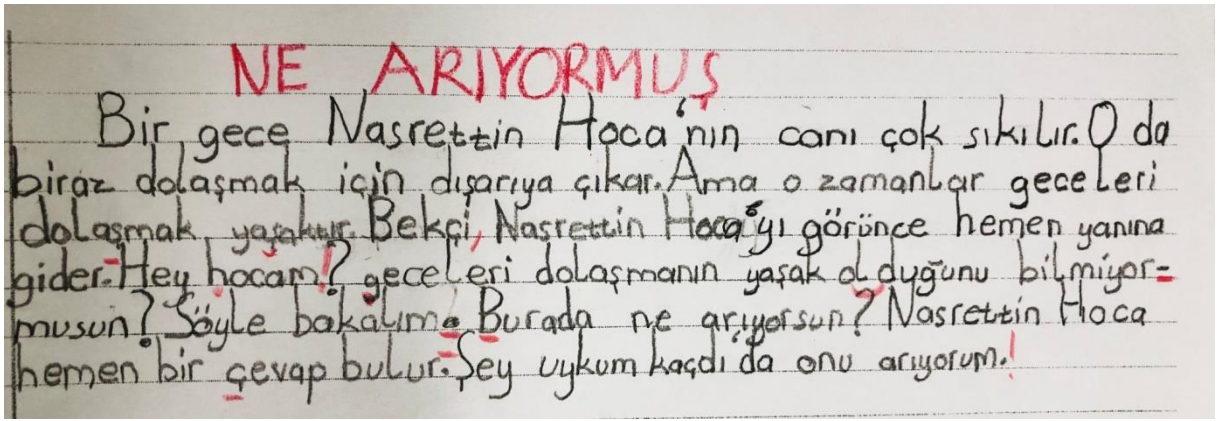 NE ARIYORMUŞ
Bir gece Nasrettin Hoca'nın canı çok sıkılır. O da
biraz dolaşmak için dışarıya çıkar. Ama o zamanlar geceleri
dolaşmak yaşaktır. Bekçi, Nasrettin Hoca'yı görünce hemen yanına
gider.-Hey hocam!? geceleri dolaşmanın yaşak olduğunu bilmiyor-
musun? Söyle bakalım. Burada ne arıyorsun? Nasrettin Hoca
hemen bir çevap bulur.-Şey uykum kaçdı'da onu arıyorum.!